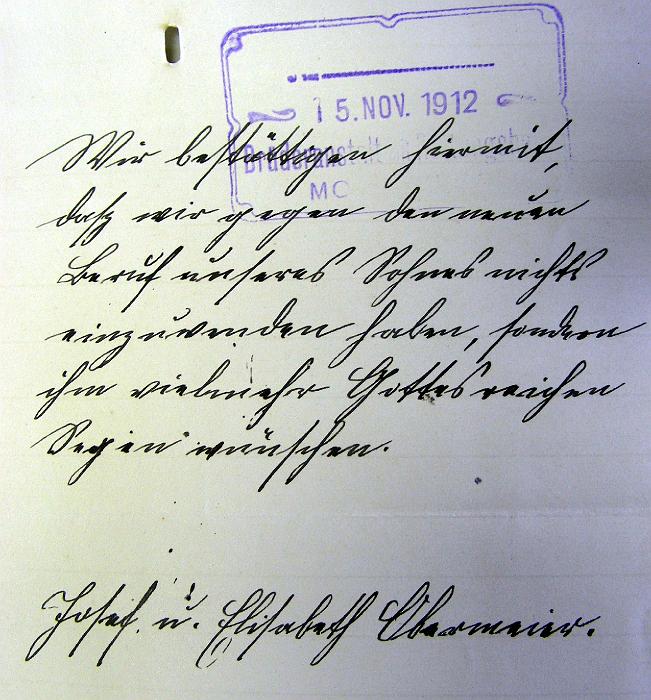 15. NOV. 1912
Brüderanstalt
MC
Wir bestättigen hiermit,
daß wir gegen den neuen
Beruf unseres Sohnes nichts
einzuwenden haben, sondern
ihm vielmehr Gottes reichen
Segen wünschen.
Josef u. Elisabeth Obermeier.